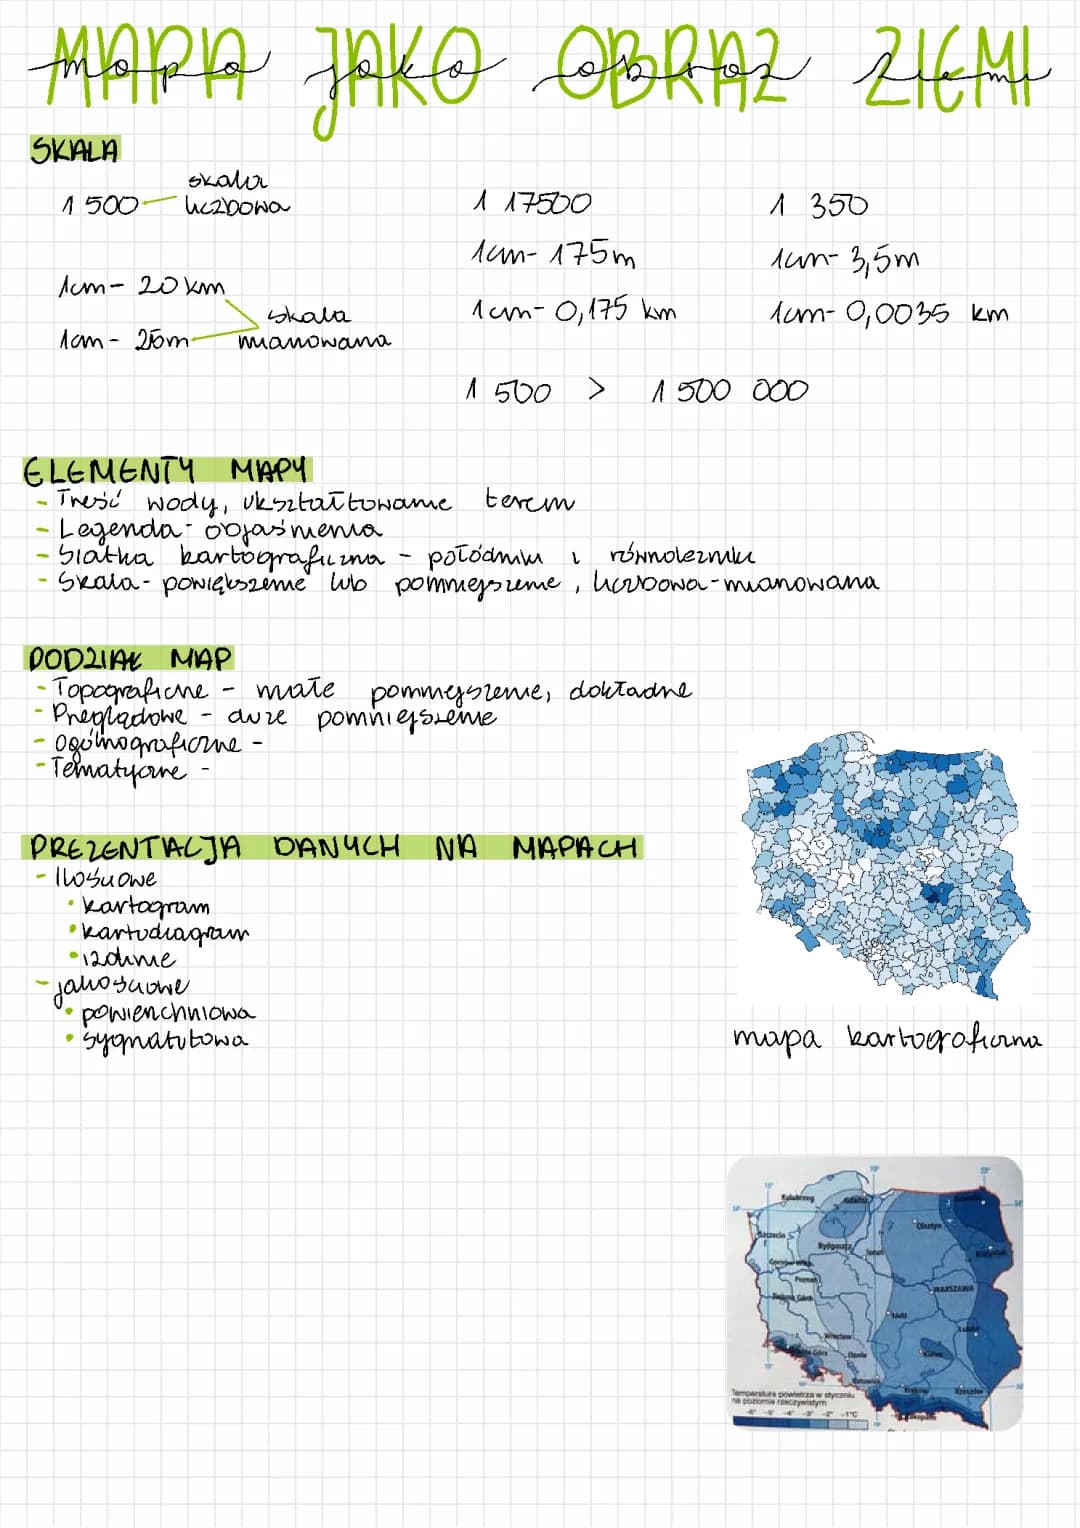 MAPA JAKO OBRAZ ZIEMI
mapa jako obraz ziemi
SKALA
1 500 skala
liczbowa
1cm - 20 km
1cm - 25m skala
mianowana
1 17500
1cm - 175m
1cm - 0,175 km
1 350
1cm - 3,5m
1cm - 0,0035 km
1 500 > 1 500 000
ELEMENTY MAPY
- Treść wody, ukształtowanie teren
- Legenda - objaśnienia
- Siatka kartograficzna - południki i równoleżniki
- Skala - powiększenie lub pomniejszenie, liczbowa - mianowana
PODZIAŁ MAP
- Topograficzne - małe pomniejszenie, dokładne
- Przeglądowe - duże pomniejszenie
- Ogólnograficzne -
- Tematyczne -
PREZENTACJA DANYCH NA MAPACH
- Ilościowe
• kartogram
• kartodiagram
• izolinie
- jakościowe
• powierzchniowa
• sygnatutowa
mapa kartograficzna
Kołobrzeg
Gdańsk
Olsztyn
Szczecin
Bydgoszcz
Toruń
Białystok
Gorzów Wlkp.
Poznań
WARSZAWA
Zielona Góra
Łódź
Lublin
Wrocław
Jelenia Góra
Opole
Kielce
Katowice
Kraków
Rzeszów
Zakopane
Temperatura powietrza w styczniu
na poziomie rzeczywistym
-6° -5° -4° -3° -2° -1°C